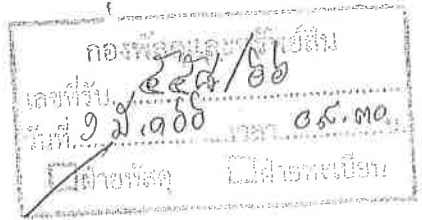 กองพัสดุและทรัพย์สิน
เลขที่รับ ๕๕๘/๖๖
วันที่ ๑ มี.ค ๖๖ เวลา ๐๙.๓๐
ฝ่ายพัสดุ ฝ่ายทะเบียน